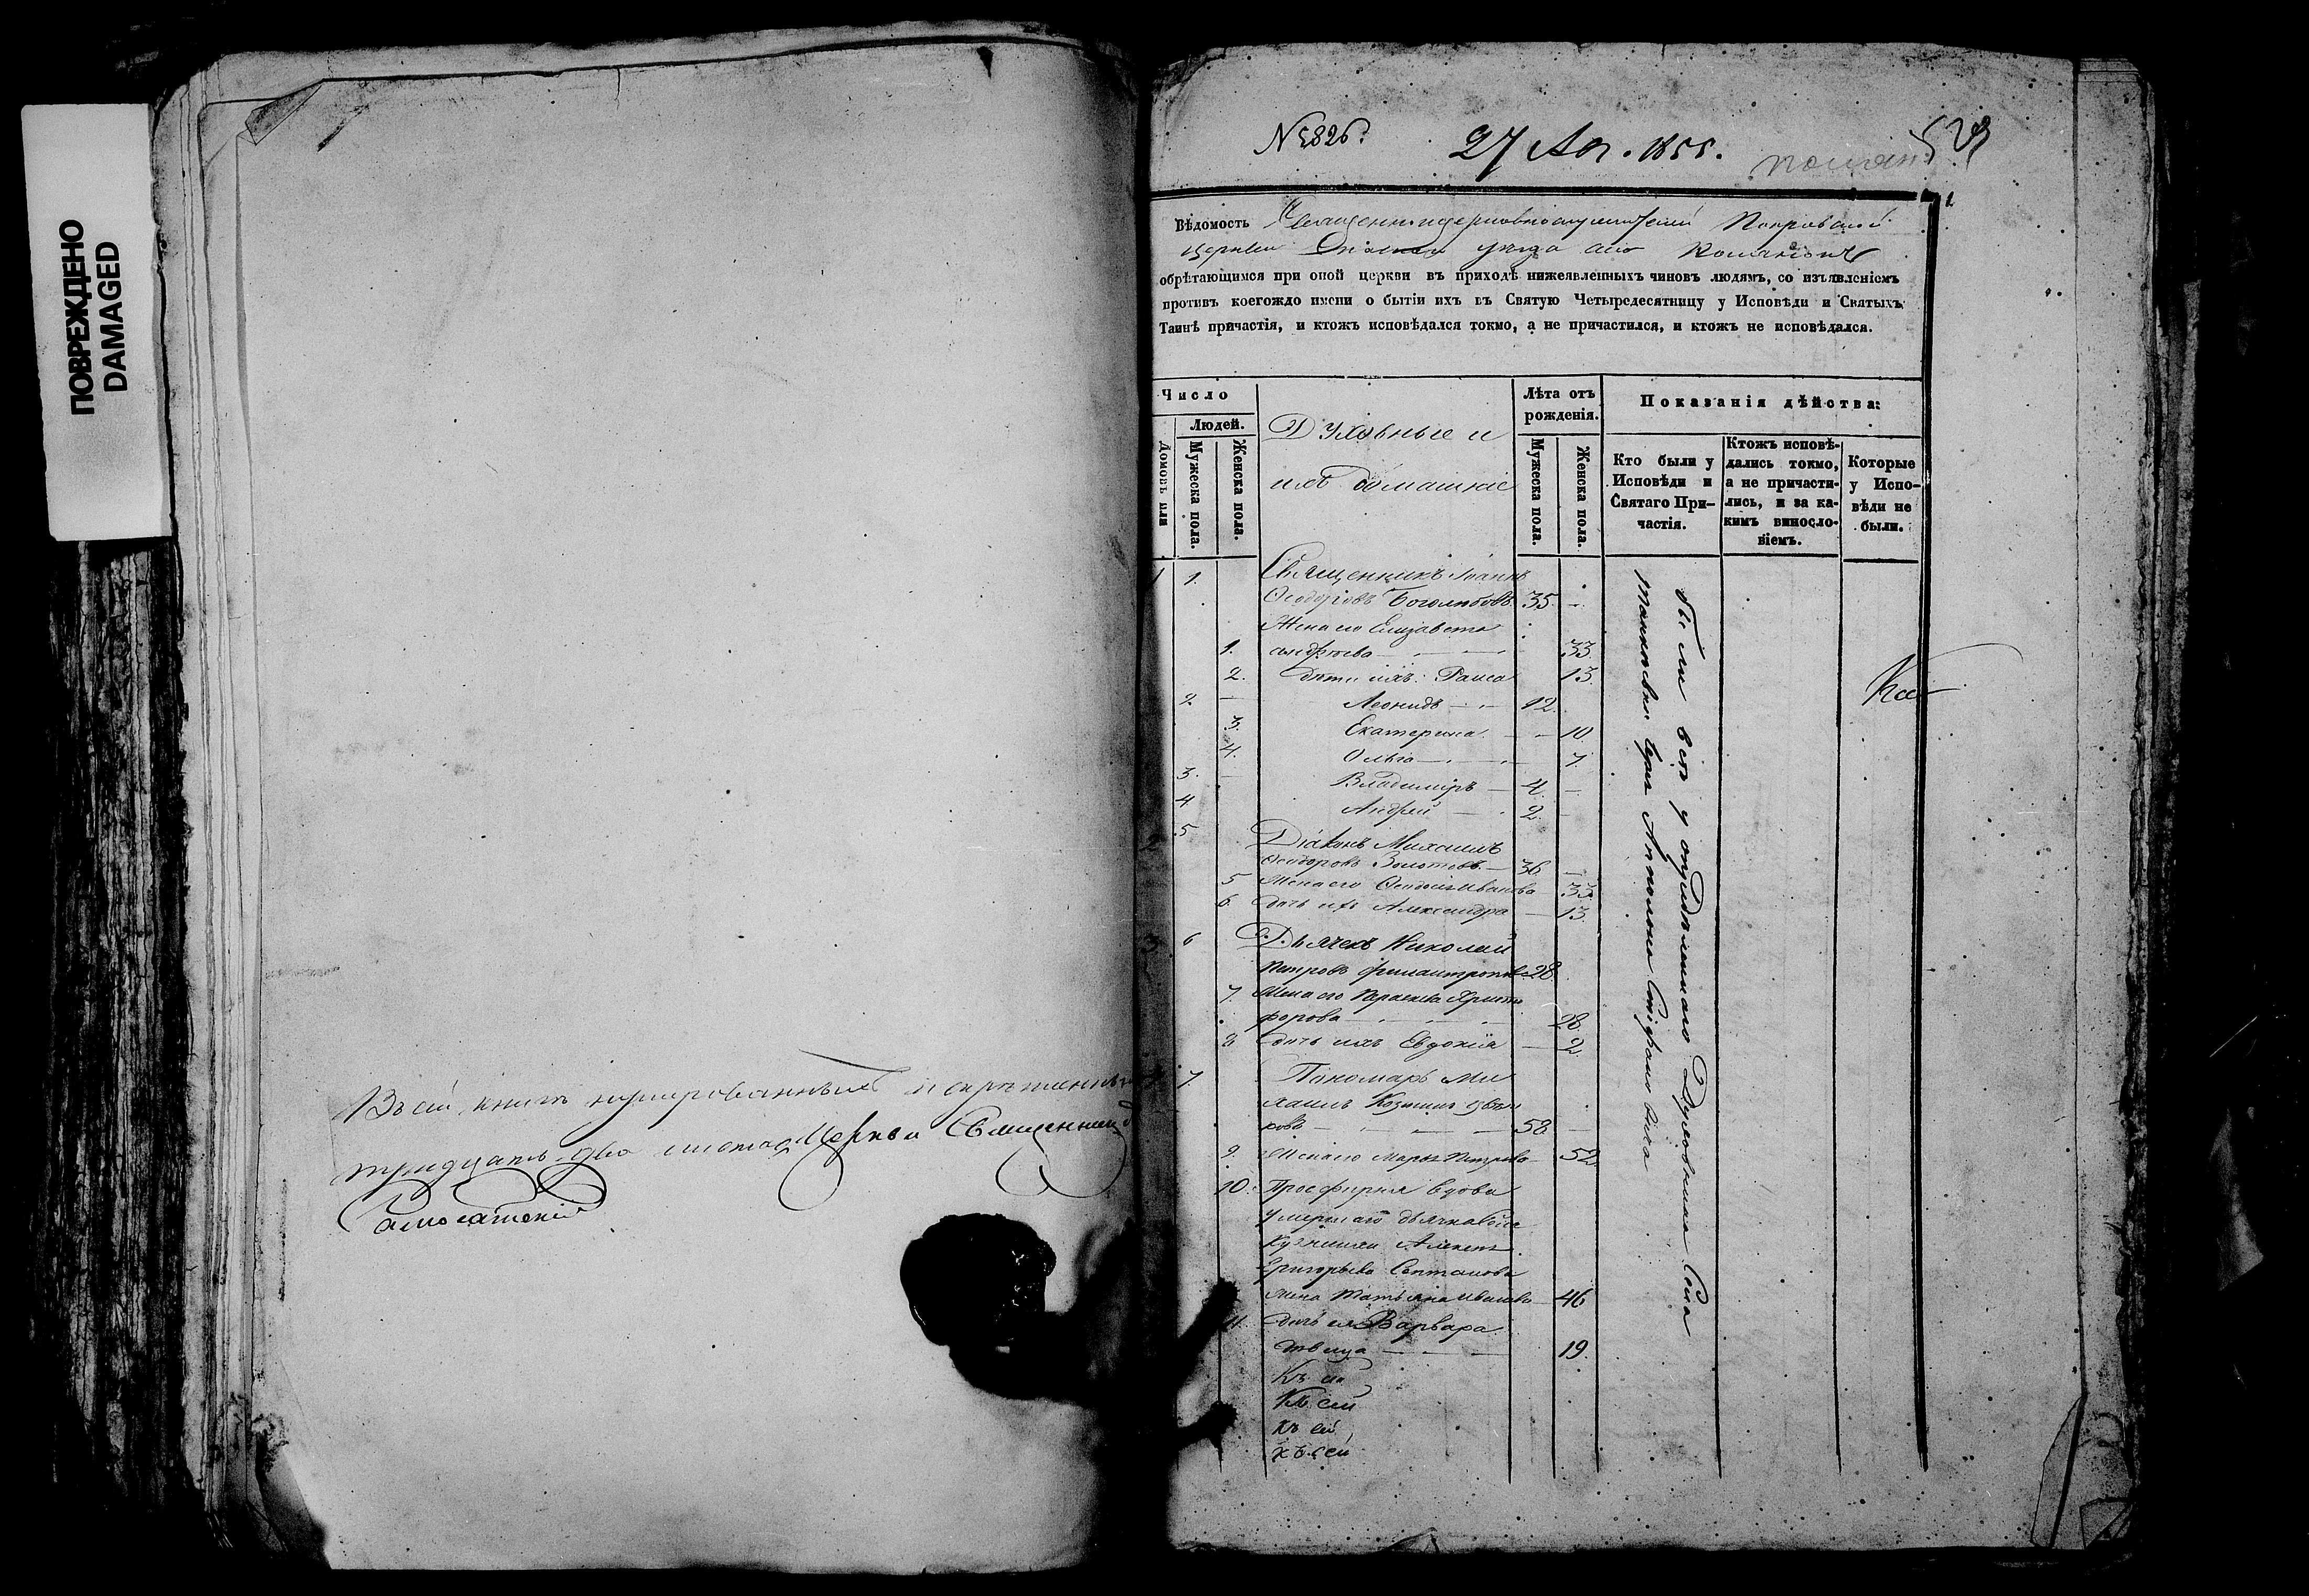 ПОВРЕЖДЕНО
DAMAGED
Въ сей книгѣ нумерованныхъ и скрѣпленныхъ
тридцать два листа, Церкви Священникъ
№ 826.
27 Ап. 1855.
529
Вѣдомость Священноцерковнослужителей Покровской
церкви уѣзда села
обрѣтающимся при оной церкви въ приходѣ нижеявленныхъ чиновъ людямъ, со изъявленіемъ
противъ коегождо имени о бытіи ихъ въ Святую Четыредесятницу у Исповѣди и Святыхъ
Таинъ причастія, и ктожъ исповѣдался токмо, а не причастился, и ктожъ не исповѣдался.
Число
Людей.
Домовъ или
Мужеска пола.
Женска пола.
Духовные и
ихъ домашніе
Лѣта отъ
рожденія.
Мужеска пола.
Женска пола.
Показанія дѣйства:
Кто были у
Исповѣди и
Святаго При-
частія.
Ктожъ исповѣ-
дались токмо,
а не причасти-
лись, и за ка-
кимъ винosло-
віемъ.
Которые
у Испо-
вѣди не
были.
1 1. Священникъ Іоаннъ
Ѳеодоровъ Боголюбовъ 35. -
Жена его Елизавета
1. Андреева 33.
2. Дѣти ихъ: Раиса 13.
2. Леонидъ 12.
3. Екатерина 10
4. Ольга 7.
3. Владиміръ 4.
4 Андрей 2.
2 5 Діаконъ Михаилъ
Ѳеодоровъ 36
5 Жена его Ѳеодосія Иванова 33.
6. Дочь ихъ Александра 13.
3 6 Дьячекъ Николай
Петровъ Филантроповъ 28.
7. Жена его Параскева Христо
форова 28.
8 Дочь ихъ Евдокия 2.
7. Пономарь Ми
хаилъ Козминъ
ровъ 58.
9. Жена его Марѳа Петрова 52.
10. Просфирня вдова
умершаго дьячка села
Алексѣя
Григорьева
жена Татьяна Иванова 46
11. Дочь ея Варвара
дѣвица 19.
Къ сей
Къ сей
Къ сей
Къ сей
Были всѣ у опредѣленнаго Духовника села